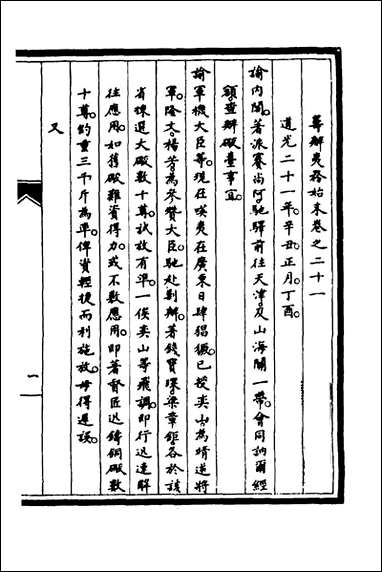 籌辦夷務始末卷之二十一
道光二十一年。辛丑正月。丁酉。
諭內閣。著派賽尚阿。馳驛前往天津。及山海關一帶。會同訥爾經
額。查辦礮臺事宜。
諭軍機大臣等。現在㗸夷在廣東日肆猖獗。已授奕山。為靖逆將
軍。隆文。楊芳。為參贊大臣。馳赴剿辦。著錢寶琛。梁章鉅。各於該
省揀選大礮數十尊。試放有準。一俟奕山等飛調。即行迅速解
往應用。如舊礮難資得力。或不敷應用。即著督匠迅鑄銅礮數
十尊。約重三千斤為率。俾資輕捷而利施放。毋得遲誤。
又
一